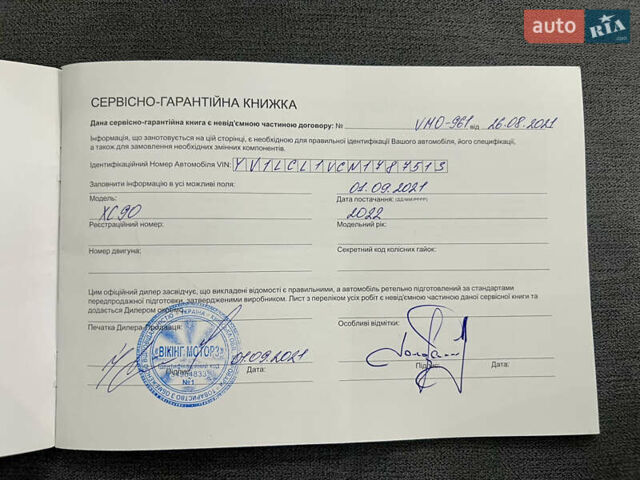 auto RIA .com
СЕРВІСНО-ГАРАНТІЙНА КНИЖКА
Дана сервісно-гарантійна книга є невід'ємною частиною договору: № VMO-961 від 26.08.2021
Інформація, що занотовується на цій сторінці, є необхідною для правильної ідентифікації Вашого автомобіля, його специфікації,
а також для замовлення необхідних змінних компонентів.
Ідентифікаційний Номер Автомобіля VIN: YV1LCL1VCN1787513
Заповнити інформацію в усі можливі поля: 01.09.2021
Модель: Дата постачання: (ДД/ММ/РРРР)
XC90 2022
Реєстраційний номер: Модельний рік:
Номер двигуна: Секретний код колісних гайок:
Цим офіційний дилер засвідчує, що викладені відомості є правильними, а автомобіль ретельно підготовлений за стандартами
передпродажної підготовки, затвердженими виробником. Лист з переліком усіх робіт є невід'ємною частиною даної сервісної книги та
додається Дилером окремо.
Печатка Дилера-Продавця: Особливі відмітки:
«ВІКІНГ МОТОРЗ»
Ідентифікаційний код
№1
01.09.2021
Підпис: Дата: Підпис: Дата: